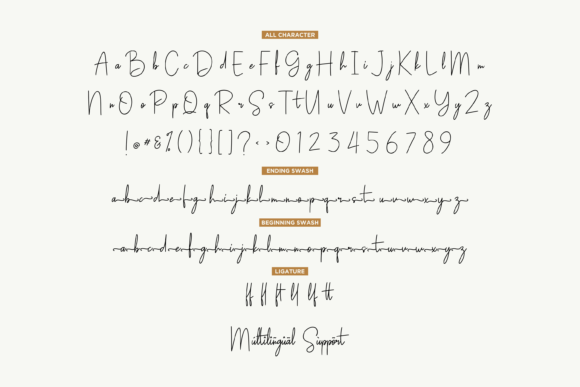 ALL CHARACTER
A a B b C c D d E e F f G g H h I i J j K k L l M m
N n O o P p Q q R r S s T t U u V v W w X x Y y Z z
! @ # & % ( ) { } [ ] ? < > 0 1 2 3 4 5 6 7 8 9
ENDING SWASH
a b c d e f g h i j k l m n o p q r s t u v w x y z
BEGINNING SWASH
a b c d e f g h i j k l m n o p q r s t u v w x y z
LIGATURE
ff fl ft lf lf tt